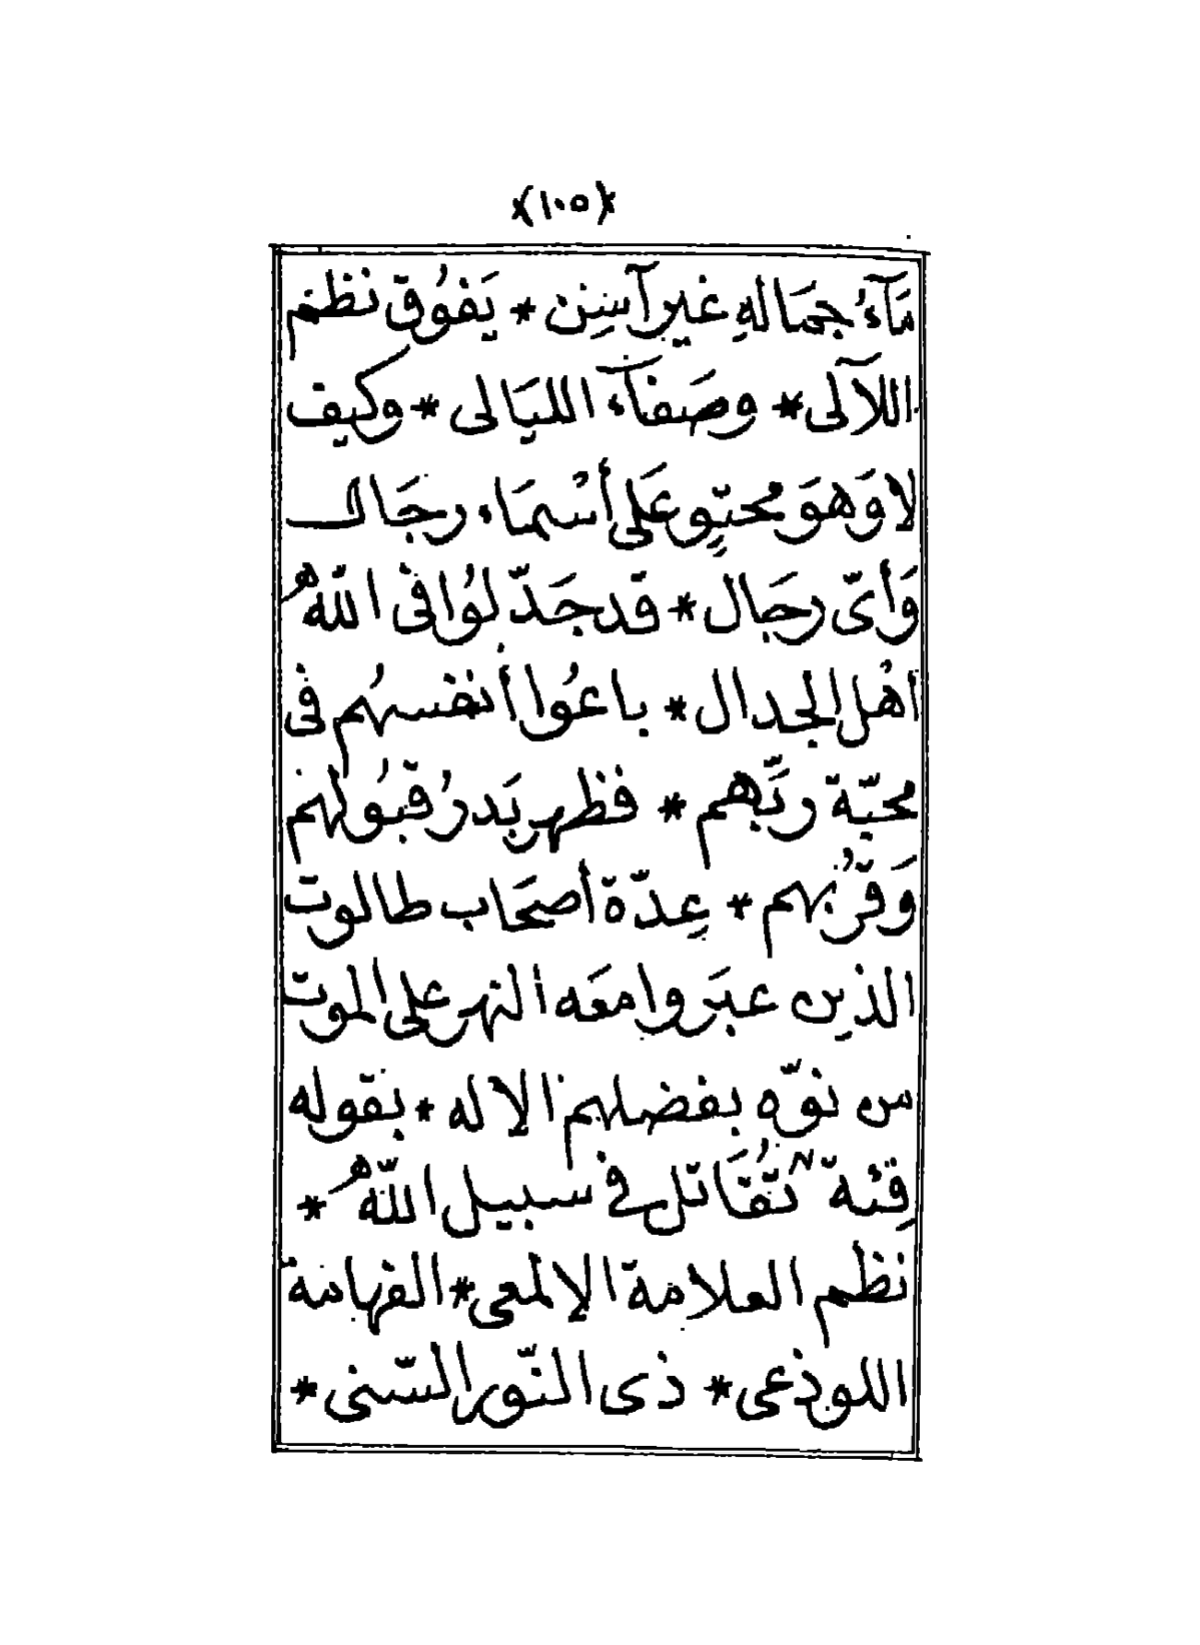 (١٠٥)
مَآءُ جمَالهِ غير آسِنٍ * يَفوُق نظم
اللآلى * وصَفآء الليَالى * وكيف
لا وَهوَ محتوٍ عَلى أسْمَاء رجَال
وَأىّ رجَال * قد جَدّلوُا فى اللّه
أهْل الجدال * باعُوا أنفسهُم فى
محبّة ربِّهم * فظهر بَدرُ قبوُلهم
وَقرُبهم * عِدّة أصحَاب طالوت
الذين عبَروا معَه النهر على الموت
س نوّه بفضلهم الإله * بقوله
فِئة تُقَاتل فى سبيل اللّه *
نظم العلامة الإلمعى * الفهامة
اللوذعى * ذى النّور السّنى *